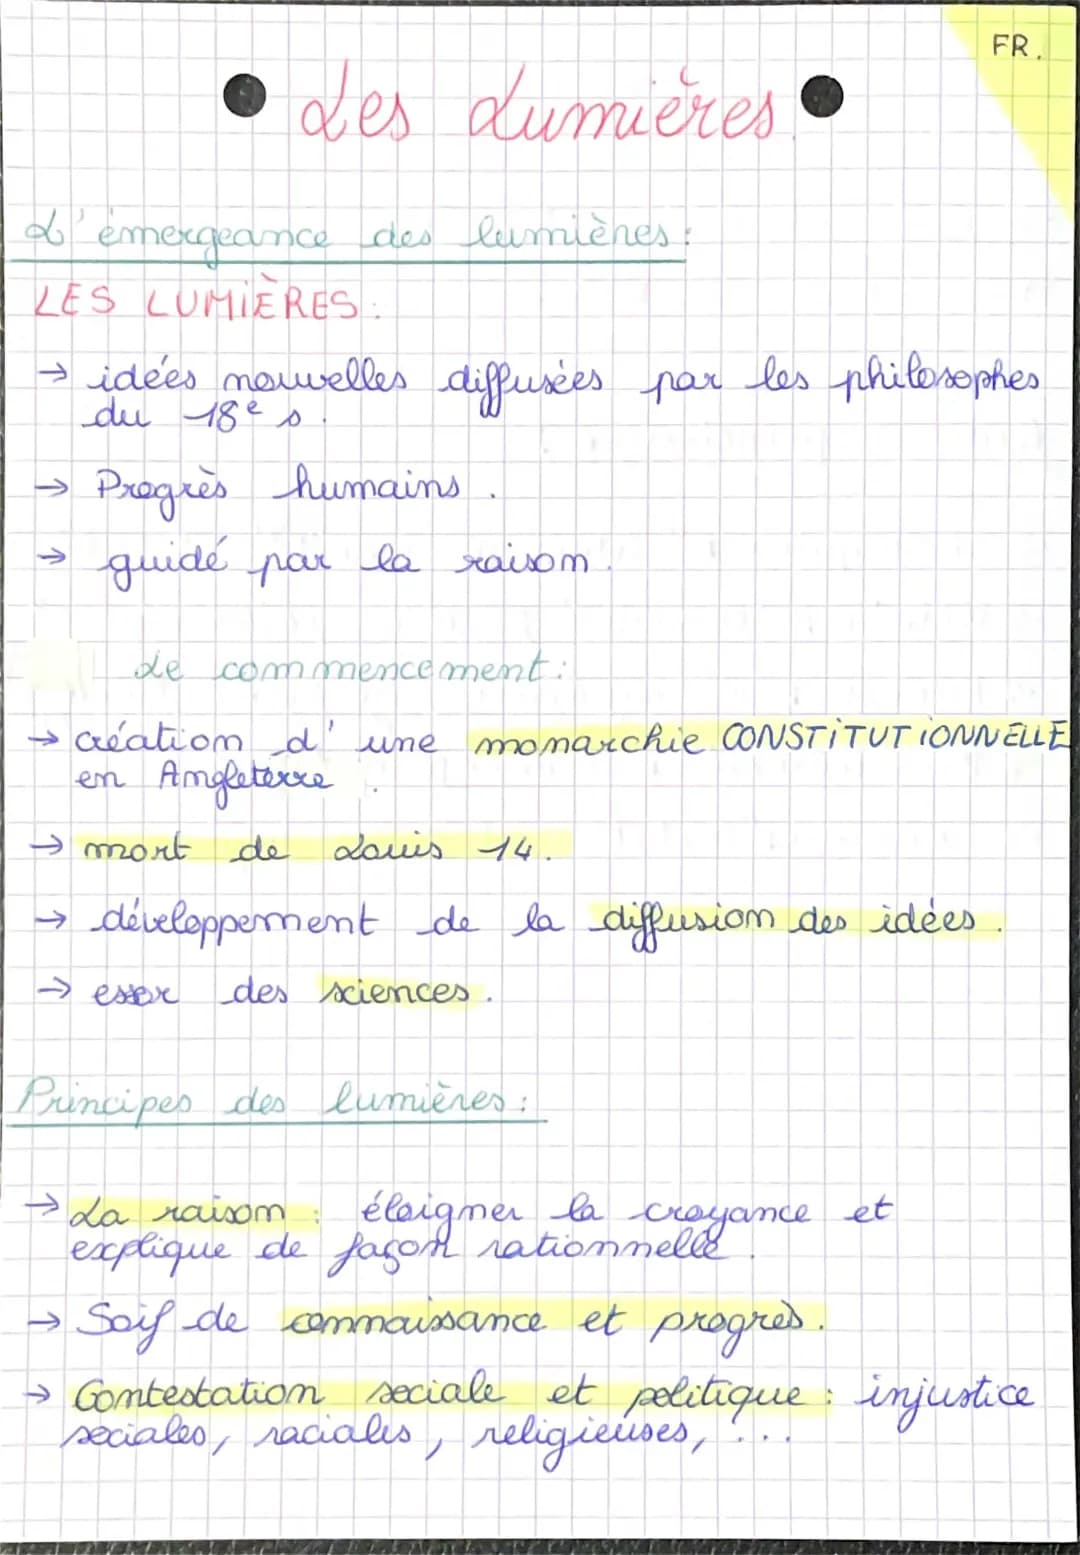 FR.
Les Lumières
L'émergeance des lumières :
LES LUMIÈRES :
→ idées nouvelles diffusées par les philosophes
du 18e s.
→ Progrès humains.
→ guidé par la raison.
Le commencement :
→ création d'une monarchie CONSTITUTIONNELLE
en Angleterre.
→ mort de Louis 14.
→ développement de la diffusion des idées.
→ essor des sciences.
Principes des lumières :
→ La raison : éloigner la croyance et
explique de façon rationnelle.
→ Soif de connaissance et progrès.
→ Contestation sociale et politique : injustice
sociales, raciales, religieuses, ...